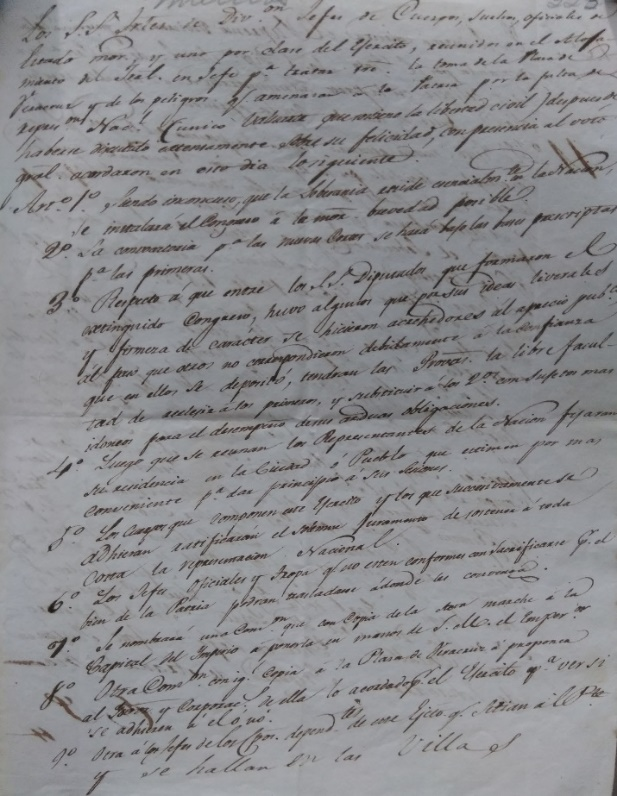 Los S.S. Jefes de Div.on, Jefes de Cuerpos, sueltos, oficiales de
Estado mor. y uno por clase del Ejército, reunidos en el Aloja
miento del Gral. en Jefe pa. tratar sre. la toma de la Plaza de
Veracruz y de los peligros q. amenazan á la Patria por la falta de
repres.on Nac.l (unico que la libertad civil) despues de
haberse discutido atentamente sobre su felicidad, con presencia al voto
gral. acordaron en este dia lo siguiente
Arto. 1o. Siendo inconcuso, que la Soberania recide en la Nacion,
se instalará el Congreso á la mor. brevedad posible.
2o. La convocatoria pa. las nuevas Cortes se hará bajo las bases prescriptas
pa. las primeras.
3o. Respecto á que entre los S.S. Diputados que formaron el
extinguido Congreso, huvo algunos que por sus ideas liverales
y firmeza de carácter se hicieron acrehedores al aprecio pub.co
al paso que otros no correspondieron debidamente á la confianza
que en ellos se depositó, tendran las Provas. la libre facul
tad de á los primeros, y substituir á los 2os. con sujetos mas
idoneos para el desempeño de sus arduas obligaciones.
4o. Luego que se reunan los Representantes de la Nacion fijaran
su residencia en la Ciudad ó Pueblo que estimen por mas
conveniente pa. dar principio á sus seciones.
5o. Los Cuerpos que componen este Ejercito y los que succesivamente se
adhieran ratificarán el solemne Juramento de sostener á toda
costa la representacion Nacional.
6o. Los Jefes oficiales y Tropa q. no esten conformes con sacrificarse pr. el
bien de la Patria podran trasladarse adonde les convenga.
7o. Se nombrará una Comi.on que con copia de la Acta marche á la
Capital del Imperio á ponerla en manos de S. M. el Emper.or
8o. Otra Comi.on con ig.l Copia á la Plaza de Veracruz á proponer
al y Corporac.s de ella lo acordado pr. el Ejercito pa. ver si
se adhieren á él o no.
9o. Otra á los Jefes de los Cpos. depend.tes de este Ejco. q. á
y se hallan en las Villas